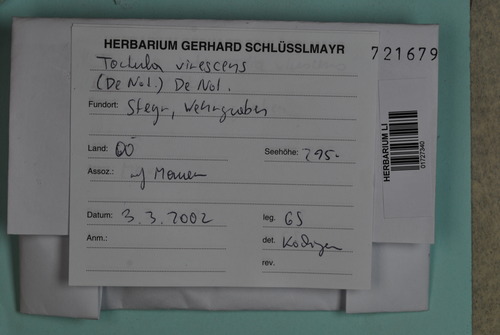 HERBARIUM GERHARD SCHLÜSSLMAYR
721679
Tortula virescens
(De Not.) De Not.
Fundort: Steyr, Wehrgraben
Land: OÖ Seehöhe: 295.-
Assoz.: auf Mauer
Datum: 3.3.2002 leg. GS
Anm.: det. Köckinger
rev.
HERBARIUM LI
01727340